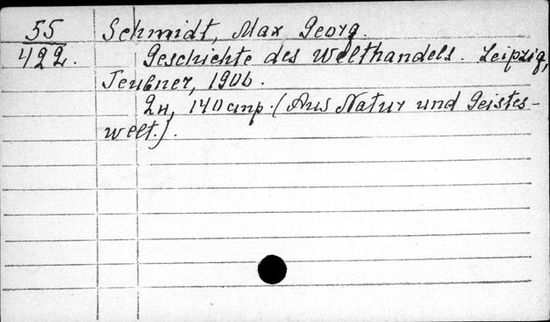 55 Schmidt, Max Georg.
422. Geschichte des Welthandels. Leipzig,
Teubner, 1906.
2н, 140 стр. (Aus Natur und Geistes-
welt.).